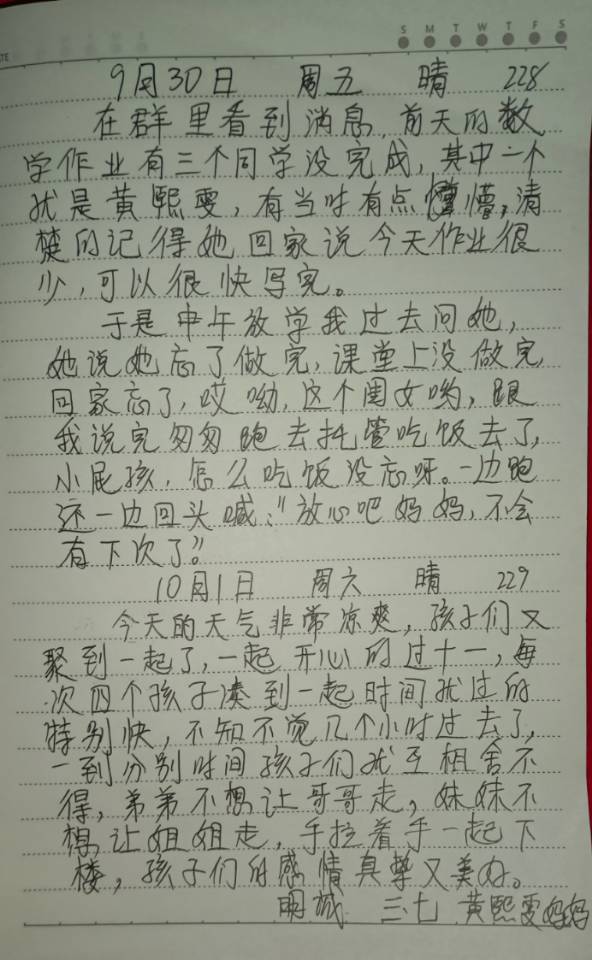 S M T W T F S
9月30日 周五 晴 228
在群里看到消息,前天的数
学作业有三个同学没完成,其中一个
就是黄熙雯,有当时有点懵,清
楚的记得她回家说今天作业很
少,可以很快写完。
于是中午放学我过去问她,
她说她忘了做完,课堂上没做完,
回家忘了,哎呦,这个闺女哟,跟
我说完匆匆跑去托管吃饭去了,
小屁孩,怎么吃饭没忘呀。一边跑
还一边回头喊:“放心吧妈妈,不会
有下次了”。
10月1日 周六 晴 229
今天的天气非常凉爽,孩子们又
聚到一起了,一起开心的过十一,每
次四个孩子凑到一起时间就过的
特别快,不知不觉几个小时过去了,
一到分别时间孩子们就互相舍不
得,弟弟不想让哥哥走,妹妹不
想让姐姐走,手拉着手一起下
楼,孩子们的感情真挚又美好。
明城 三.七 黄熙雯妈妈